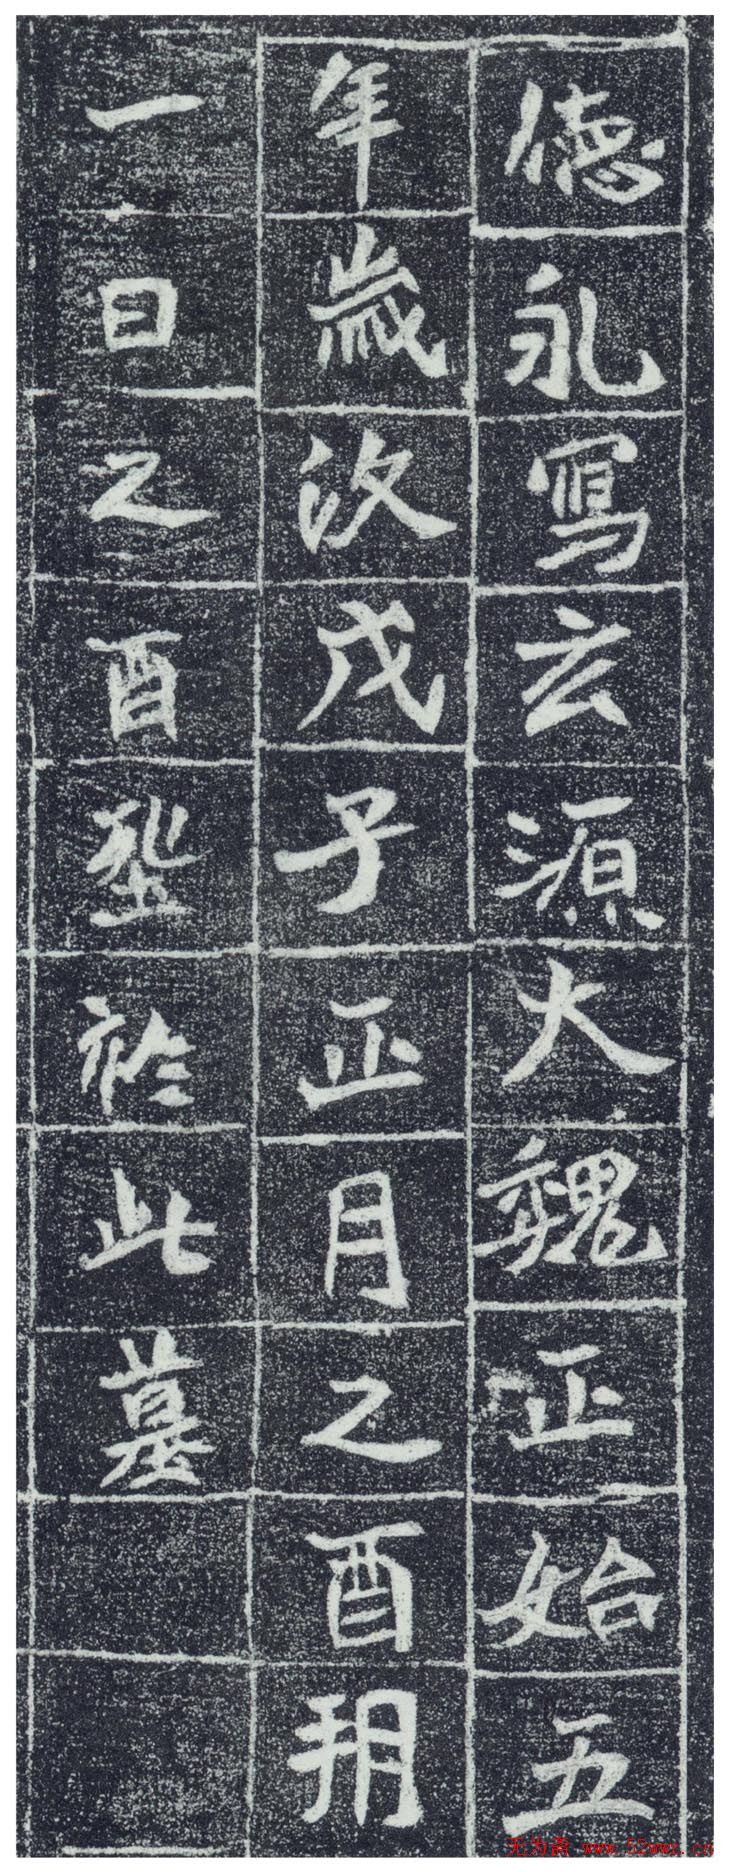 德永寫玄源大魏正始五
年歲次戊子正月乙酉朔
一日乙酉塟於此墓
无为斋 www.52wwz.cn